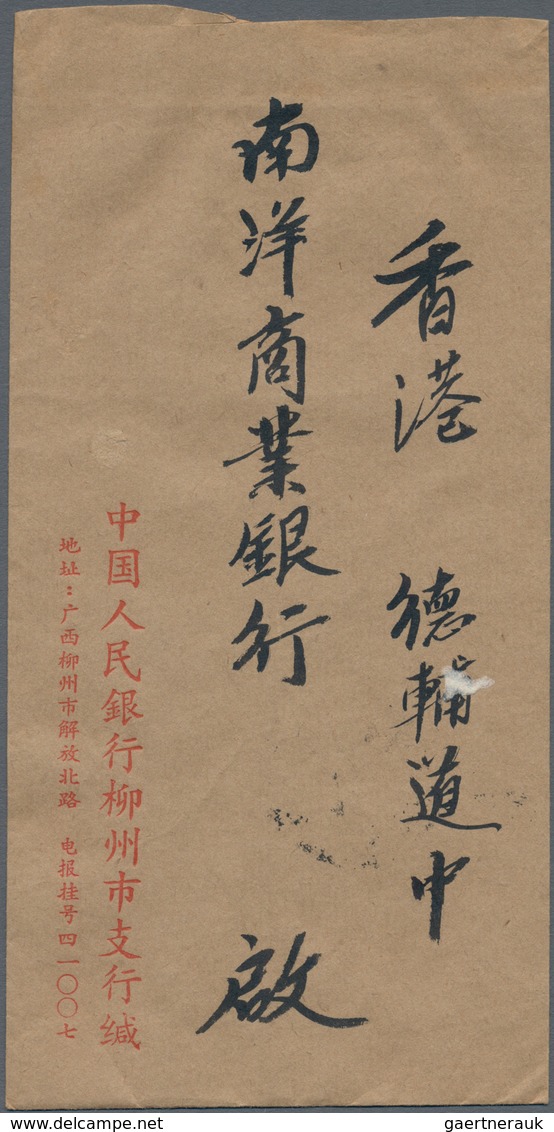 香港 德輔道中
南洋商業銀行 啟
中国人民銀行柳州市支行缄
地址：广西柳州市解放北路 电报挂号四一〇〇七
gaertnerauk